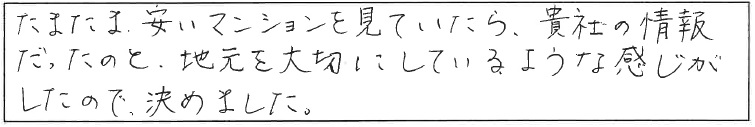 たまたま、安いマンションを見ていたら、貴社の情報
だったのと、地元を大切にしているような感じが
したので、決めました。